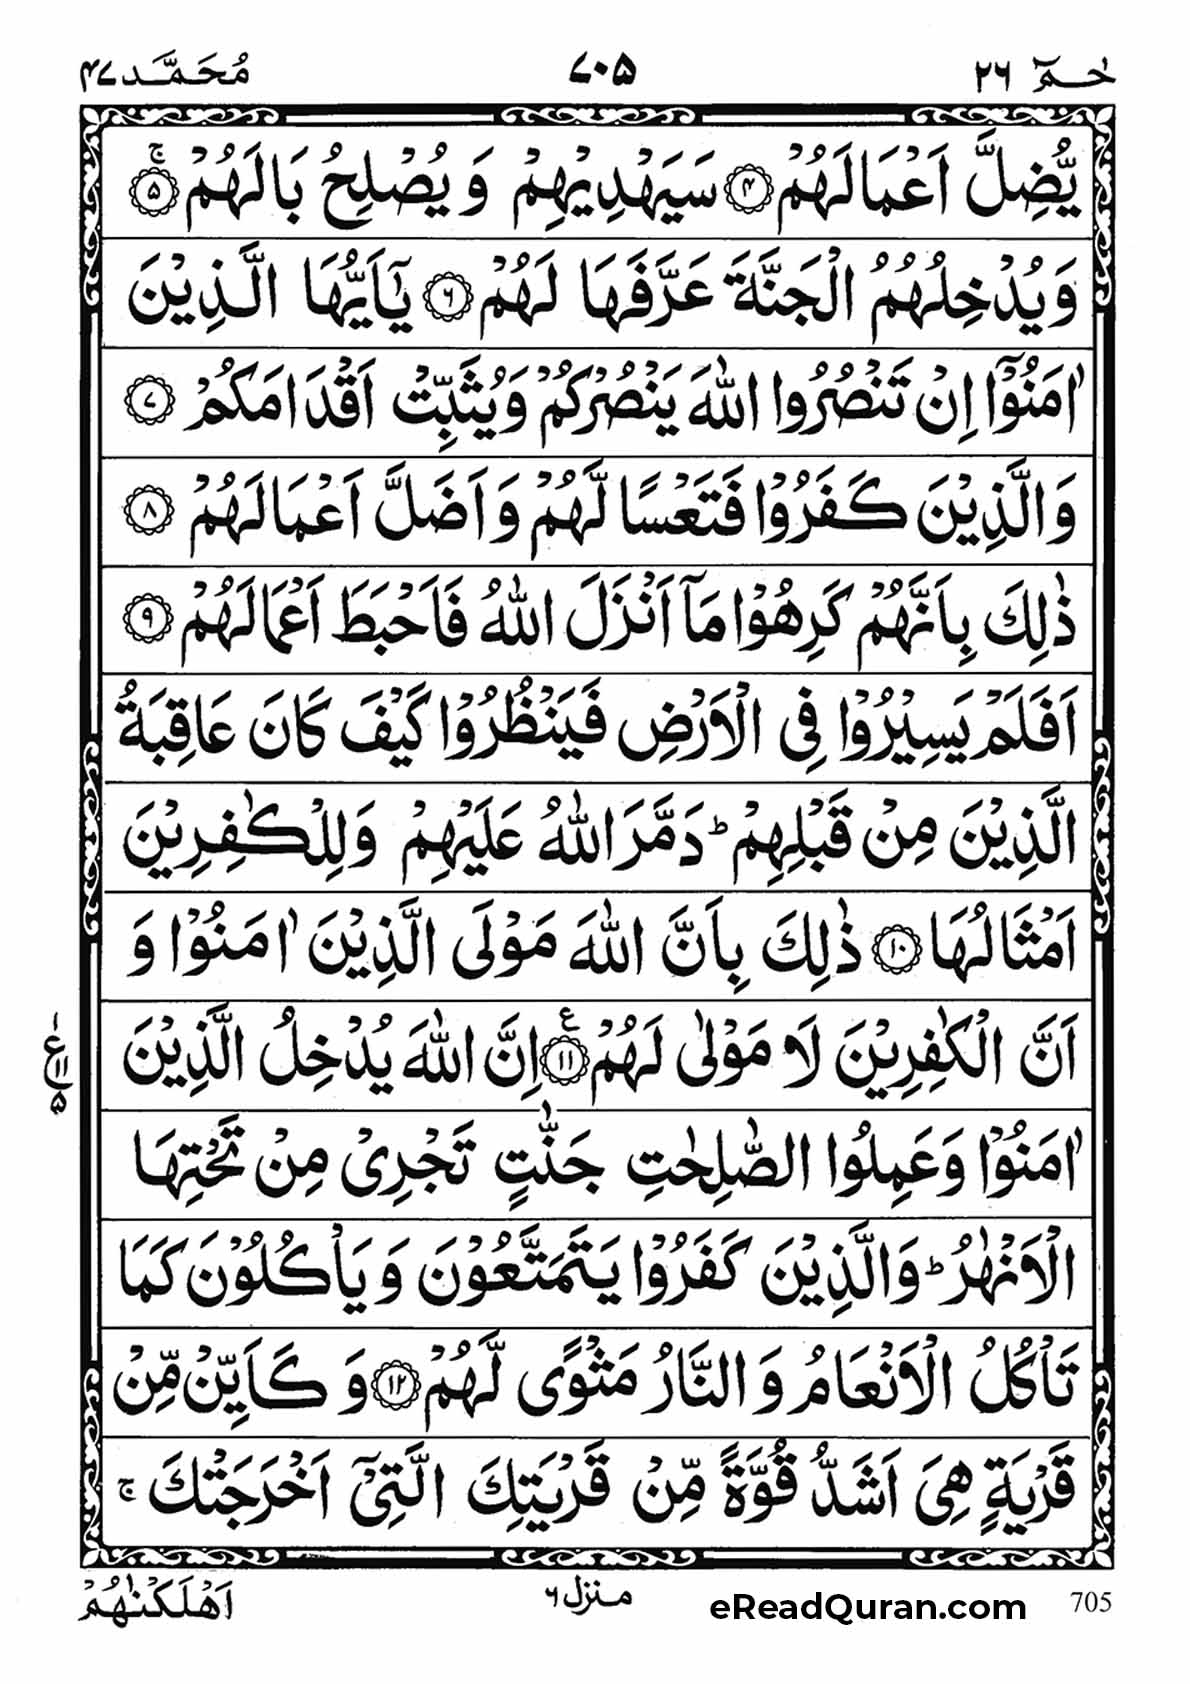 حٰمٓ ٢٦ ٧٠٥ مُحَمَّد ٤٧
يُّضِلَّ اَعْمَالَهُمْ ﴿۴﴾ سَيَهْدِيْهِمْ وَ يُصْلِحُ بَالَهُمْ ۚ ﴿۵﴾
وَيُدْخِلُهُمُ الْجَنَّةَ عَرَّفَهَا لَهُمْ ﴿۶﴾ يٰۤاَيُّهَا الَّذِيْنَ
اٰمَنُوْۤا اِنْ تَنْصُرُوا اللّٰهَ يَنْصُرْكُمْ وَيُثَبِّتْ اَقْدَامَكُمْ ﴿۷﴾
وَالَّذِيْنَ كَفَرُوْا فَتَعْسًا لَّهُمْ وَاَضَلَّ اَعْمَالَهُمْ ﴿۸﴾
ذٰلِكَ بِاَنَّهُمْ كَرِهُوْا مَاۤ اَنْزَلَ اللّٰهُ فَاَحْبَطَ اَعْمَالَهُمْ ﴿۹﴾
اَفَلَمْ يَسِيْرُوْا فِى الْاَرْضِ فَيَنْظُرُوْا كَيْفَ كَانَ عَاقِبَةُ
الَّذِيْنَ مِنْ قَبْلِهِمْ ؕ دَمَّرَ اللّٰهُ عَلَيْهِمْ وَلِلْكٰفِرِيْنَ
اَمْثَالُهَا ﴿۱۰﴾ ذٰلِكَ بِاَنَّ اللّٰهَ مَوْلَى الَّذِيْنَ اٰمَنُوْا وَ
اَنَّ الْكٰفِرِيْنَ لَا مَوْلٰى لَهُمْ ﴿۱۱﴾ ع اِنَّ اللّٰهَ يُدْخِلُ الَّذِيْنَ
١ ع ١١ ۵
اٰمَنُوْا وَعَمِلُوا الصّٰلِحٰتِ جَنّٰتٍ تَجْرِىْ مِنْ تَحْتِهَا
الْاَنْهٰرُ ؕ وَالَّذِيْنَ كَفَرُوْا يَتَمَتَّعُوْنَ وَ يَاْكُلُوْنَ كَمَا
تَاْكُلُ الْاَنْعَامُ وَ النَّارُ مَثْوًى لَّهُمْ ﴿۱۲﴾ وَ كَاَيِّنْ مِّنْ
قَرْيَةٍ هِىَ اَشَدُّ قُوَّةً مِّنْ قَرْيَتِكَ الَّتِىْۤ اَخْرَجَتْكَ ۚ
705 eReadQuran.com منزل ٦ اَهْلَكْنٰهُمْ